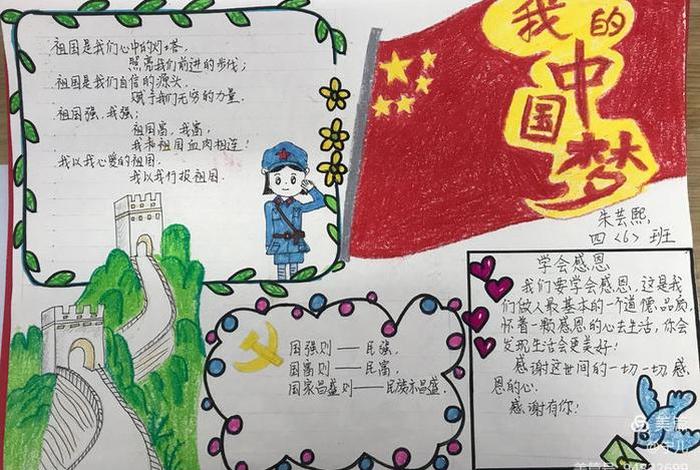 我的
中
国
梦
朱芸熙
四〈6〉班
祖国是我们心中的灯塔,
照亮我们前进的步伐;
祖国是我们自信的源头,
赋予我们无穷的力量.
祖国强,我强;
祖国富,我富;
我和祖国血肉相连!
我以我心爱的祖国.
我以我行报祖国.
国强则——民强,
国富则——民富,
国家昌盛则——民族亦昌盛.
学会感恩
我们要学会感恩,这是我
们做人最基本的一个道德品质,
怀着一颗感恩的心去生活,你会
发现生活会更美好!
感谢这世间的一切一切,感
恩的心.
感谢有你!
美篇